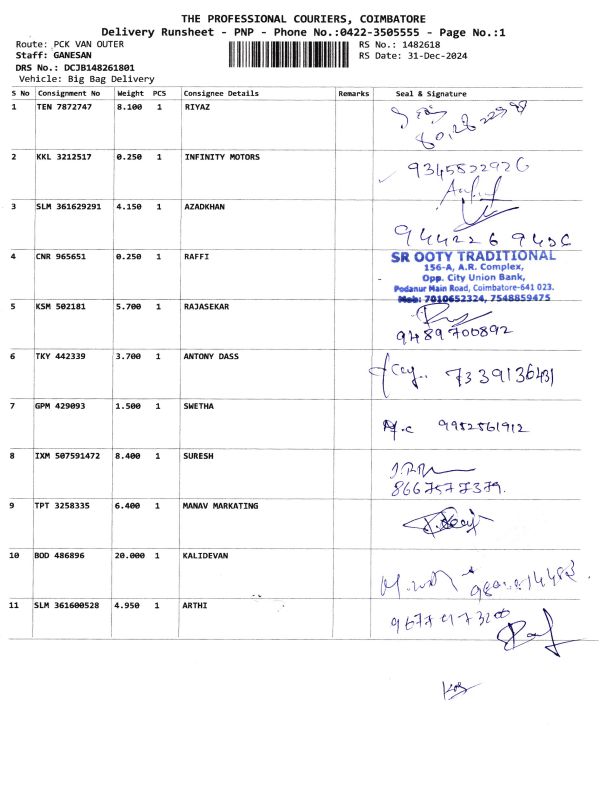 THE PROFESSIONAL COURIERS, COIMBATORE
Delivery Runsheet - PNP - Phone No.:0422-3505555 - Page No.:1
Route: PCK VAN OUTER
RS No.: 1482618
Staff: GANESAN
RS Date: 31-Dec-2024
DRS No.: DCJB148261801
Vehicle: Big Bag Delivery
S No Consignment No Weight PCS Consignee Details Remarks Seal & Signature
1 TEN 7872747 8.100 1 RIYAZ
2 KKL 3212517 0.250 1 INFINITY MOTORS
9345822926
3 SLM 361629291 4.150 1 AZADKHAN
4 CNR 965651 0.250 1 RAFFI
SR OOTY TRADITIONAL
156-A, A.R. Complex,
Opp. City Union Bank,
Podanur Main Road, Coimbatore-641 023.
Mob: 7010652324, 7548859475
5 KSM 502181 5.700 1 RAJASEKAR
9489700892
6 TKY 442339 3.700 1 ANTONY DASS
7339136431
7 GPM 429093 1.500 1 SWETHA
9952561912
8 IXM 507591472 8.400 1 SURESH
8667577379.
9 TPT 3258335 6.400 1 MANAV MARKATING
10 BOD 486896 20.000 1 KALIDEVAN
11 SLM 361600528 4.950 1 ARTHI